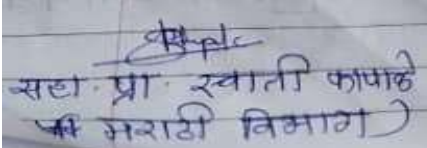 सहा. प्रा. स्वाती कापाळे
मराठी विभाग )